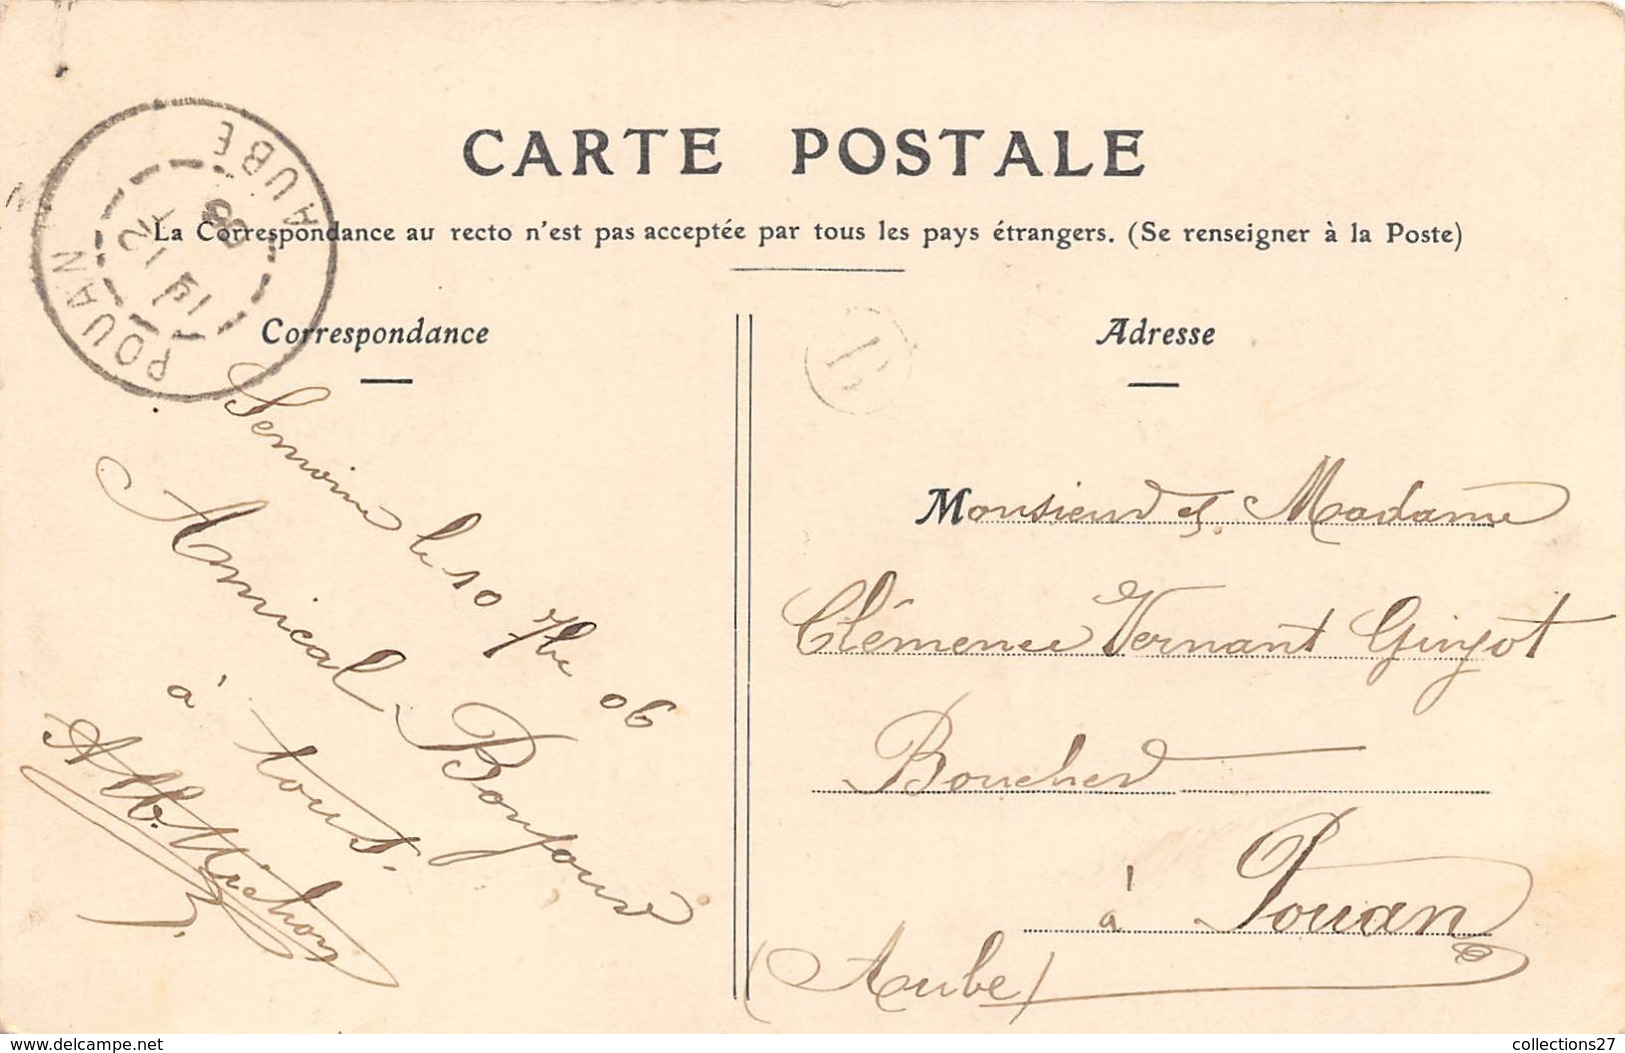 CARTE POSTALE
La Correspondance au recto n'est pas acceptée par tous les pays étrangers. (Se renseigner à la Poste)
POUAN
AUBE
Correspondance
Semoine le 10 7bre 06
Amical Bonjour
à tous.
Alb. Michon
Adresse
E
Monsieur et Madame
Clémence Vernant Guyot
Boucher
à Pouan
(Aube)
www.delcampe.net
collections27